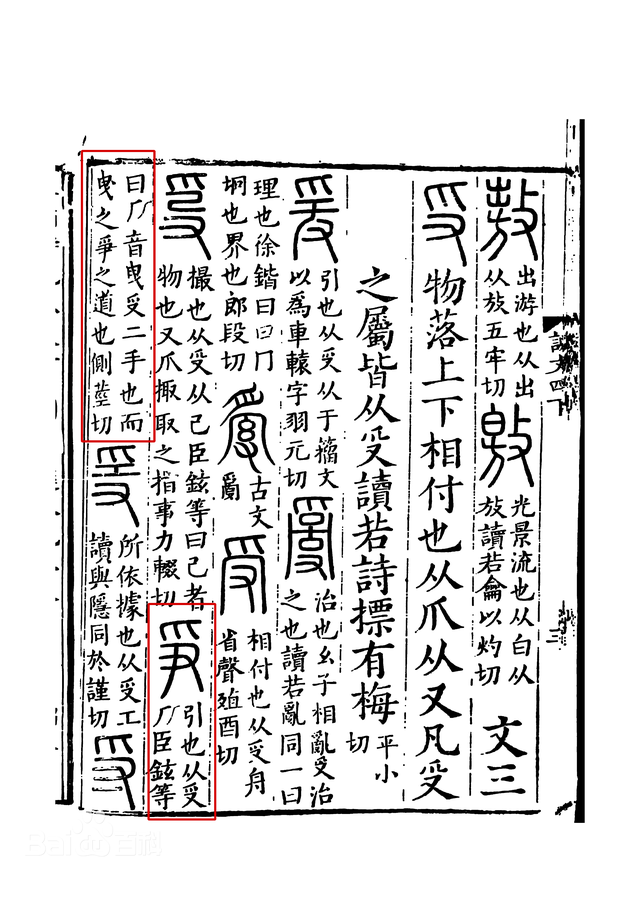 敖 出游也从出从放五牢切 敫 光景流也从白从放讀若龠以灼切 文三
𠬪 物落上下相付也从爪从又凡𠬪
之屬皆从𠬪讀若詩摽有梅 平小切
爰 引也从𠬪从于籒文以爲車轅字羽元切 𤔔 治也幺子相亂𠬪治之也讀若亂同一曰
理也徐鍇曰曰冂坰也界也郎段切 古文𤔔 受 相付也从𠬪舟省聲殖酉切
撮也从𠬪从己臣鉉等曰己者物也又爪掫取之指事力輟切 爭 引也从𠬪𠂆臣鉉等
曰𠂆音曳𠬪二手也而曳之爭之道也側莖切 𤔌 所依據也从𠬪工讀與隱同於謹切
說文四下
三
Baidu百科